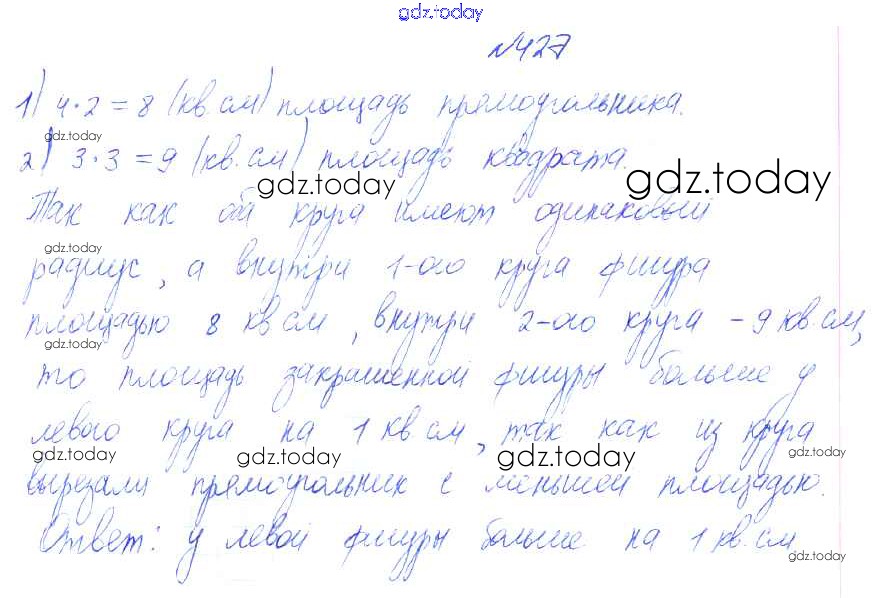 gdz.today
№427
1) 4·2=8 (кв.см) площадь прямоугольника.
gdz.today
2) 3·3=9 (кв.см) площадь квадрата.
gdz.today gdz.today
Так как оба круга имеют одинаковый
gdz.today
радиус, а внутри 1-ого круга фигура
площадью 8 кв см, внутри 2-ого круга -9 кв.см,
gdz.today
то площадь закрашенной фигуры больше у
левого круга на 1 кв см, так как из круга
gdz.today gdz.today gdz.today gdz.today
вырезали прямоугольник с меньшей площадью.
Ответ: у левой фигуры больше на 1 кв.см
gdz.today